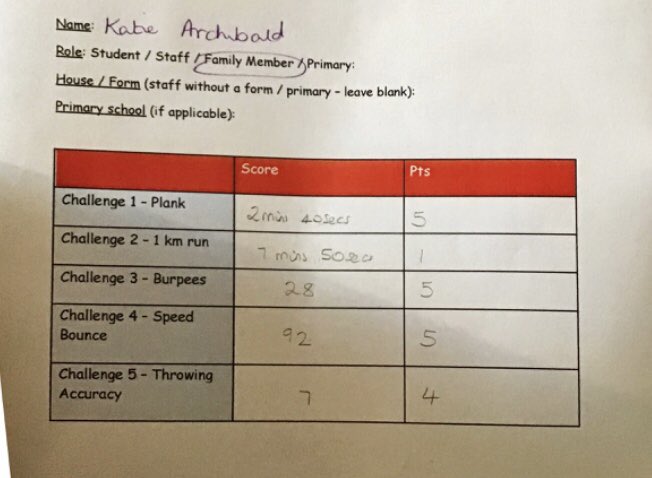 Name: Katie Archibald
Role: Student / Staff / Family Member / Primary:
House / Form (staff without a form / primary – leave blank):
Primary school (if applicable):
Score Pts
Challenge 1 - Plank 2mins 40secs 5
Challenge 2 - 1 km run 7 mins 50sec 1
Challenge 3 - Burpees 28 5
Challenge 4 - Speed Bounce 92 5
Challenge 5 - Throwing Accuracy 7 4